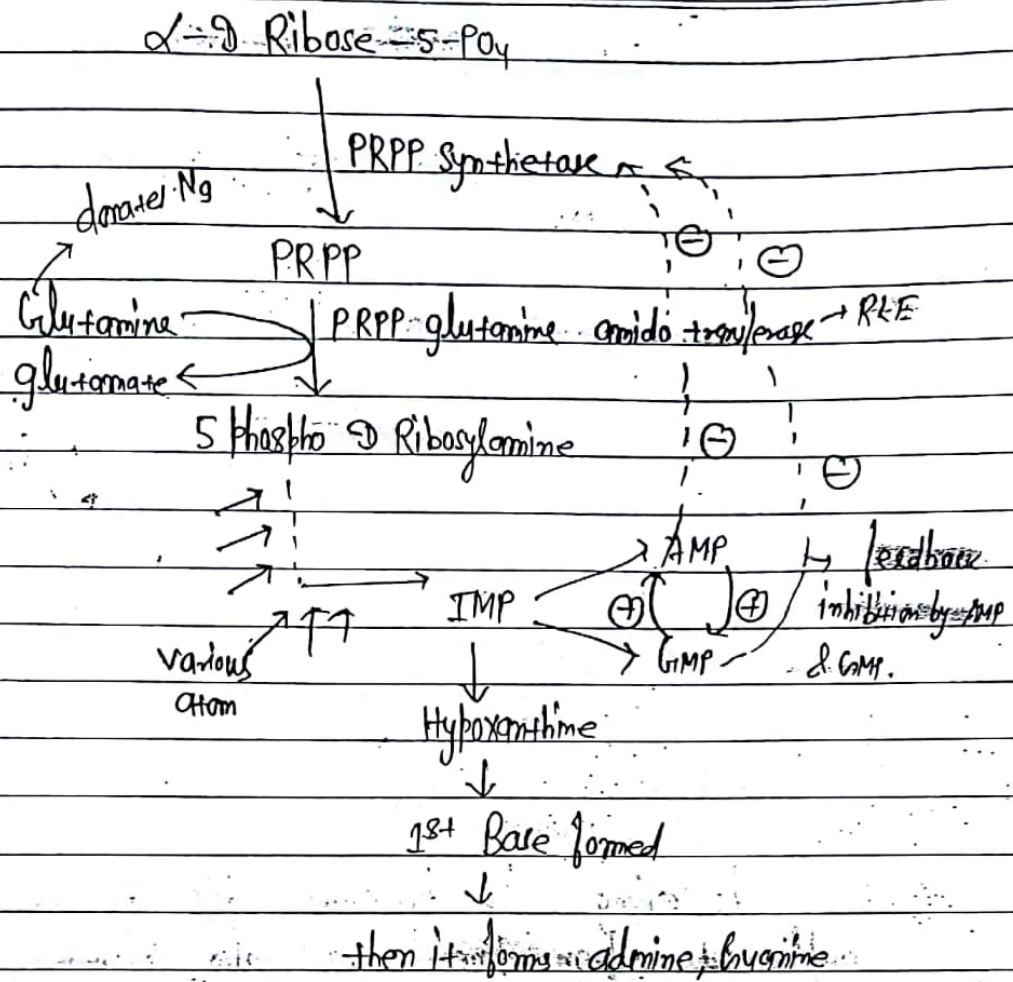 α-D Ribose-5-PO4
PRPP Synthetase
donates N9
PRPP
Glutamine
PRPP glutamine amido transferase → RLE
glutamate
5 phospho D Ribosylamine
AMP
feedback
IMP
inhibition by AMP
GMP
& GMP.
various
atom
Hypoxanthine
1st Base formed
then it forms adenine, Guanine